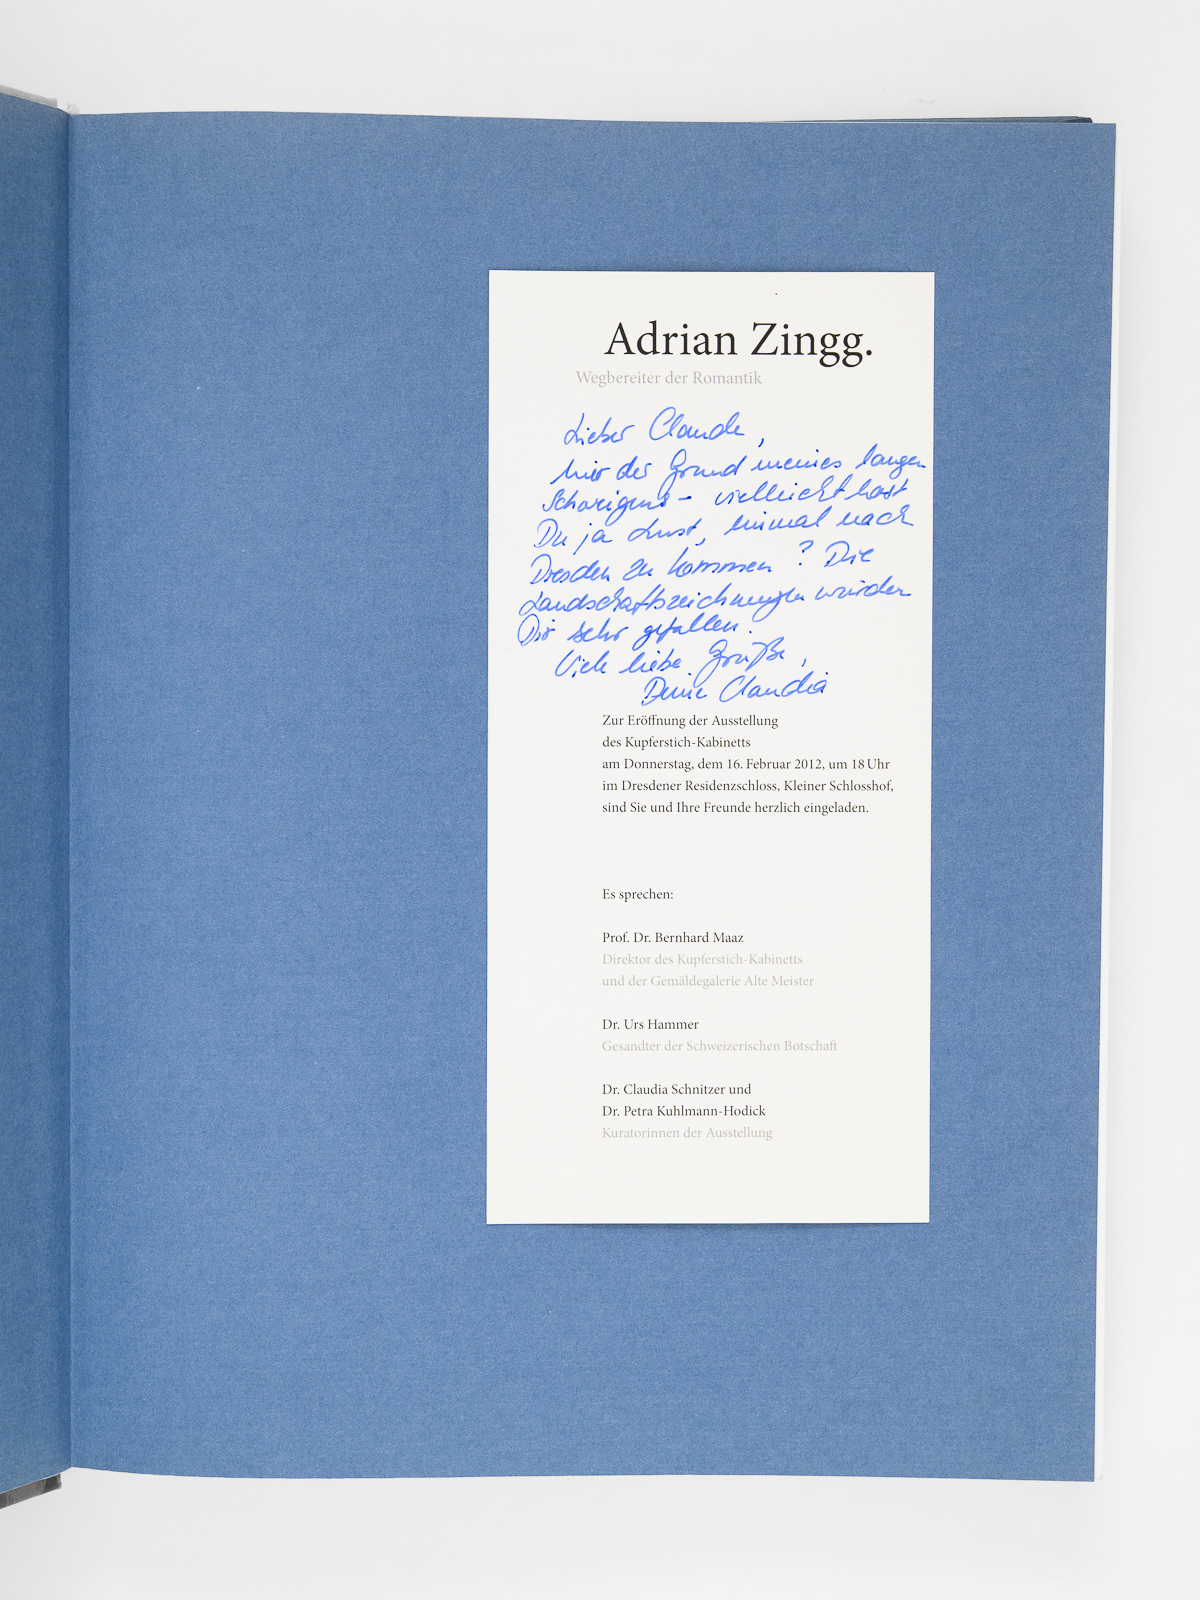 Adrian Zingg.
Wegbereiter der Romantik
Lieber Claude,
hier der Grund meines langen
Schweigens – vielleicht hast
Du ja Lust, einmal nach
Dresden zu kommen? Die
Landschaftszeichnungen würden
Dir sehr gefallen.
Viele liebe Grüße,
Deine Claudia
Zur Eröffnung der Ausstellung
des Kupferstich-Kabinetts
am Donnerstag, dem 16. Februar 2012, um 18 Uhr
im Dresdener Residenzschloss, Kleiner Schlosshof,
sind Sie und Ihre Freunde herzlich eingeladen.
Es sprechen:
Prof. Dr. Bernhard Maaz
Direktor des Kupferstich-Kabinetts
und der Gemäldegalerie Alte Meister
Dr. Urs Hammer
Gesandter der Schweizerischen Botschaft
Dr. Claudia Schnitzer und
Dr. Petra Kuhlmann-Hodick
Kuratorinnen der Ausstellung